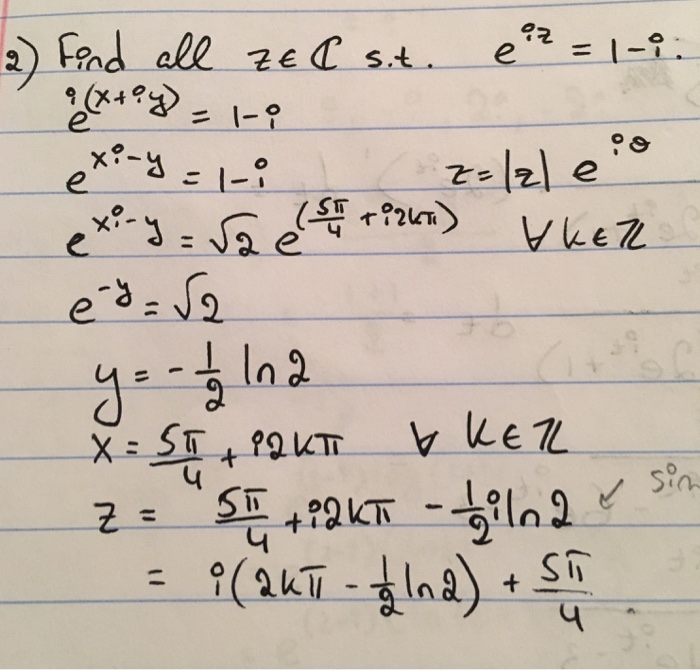 2) Find all z ∈ ℂ s.t. e^{iz} = 1-i.
e^{i(x+iy)} = 1-i
e^{xi-y} = 1-i z = |z| e^{iθ}
e^{xi-y} = √2 e^{(5π/4 + i2kπ)} ∀ k ∈ ℤ
e^{-y} = √2
y = -1/2 ln 2
x = 5π/4 + i2kπ ∀ k ∈ ℤ
z = 5π/4 + i2kπ - 1/2 i ln 2 ↙
= i(2kπ - 1/2 ln 2) + 5π/4.